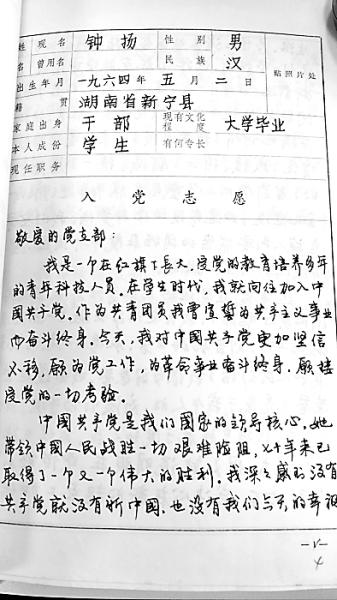 姓 现名 钟扬 性别 男
名 曾用名 民族 汉
出生年月 一九六四年 五月二日 贴照片处
籍贯 湖南省新宁县
家庭出身 干部 现有文化程度 大学毕业
本人成份 学生 有何专长
现任职务
入党志愿
敬爱的党支部：
我是一个在红旗下长大，受党的教育培养多年
的青年科技人员。在学生时代，我就向往加入中
国共产党。作为共青团员我曾宣誓为共产主义事业
而奋斗终身。今天，我对中国共产党更加坚信
不移，愿为党工作，为革命事业奋斗终身，愿接
受党的一切考验。
中国共产党是我们国家的领导核心。她
带领中国人民战胜一切艰难险阻，七十年来已
取得了一个又一个伟大的胜利。我深深感到没有
共产党就没有新中国，也没有我们今天的幸福